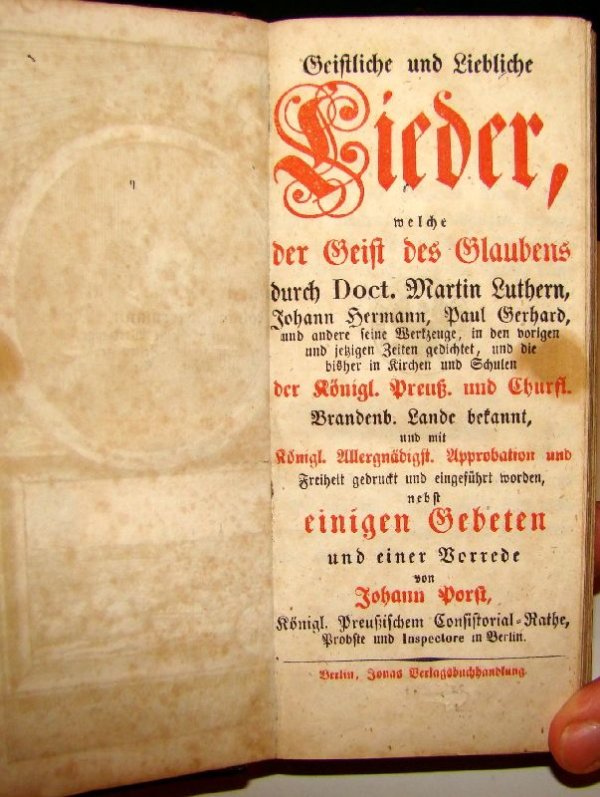 Geistliche und Liebliche
Lieder,
welche
der Geist des Glaubens
durch Doct. Martin Luthern,
Johann Hermann, Paul Gerhard,
und andere seine Werkzeuge, in den vorigen
und jetzigen Zeiten gedichtet, und die
bisher in Kirchen und Schulen
der Königl. Preuß. und Churfl.
Brandenb. Lande bekannt,
und mit
Königl. Allergnädigst. Approbation und
Freiheit gedruckt und eingeführt worden,
nebst
einigen Gebeten
und einer Vorrede
von
Johann Porst,
Königl. Preußischem Consistorial-Rathe,
Probste und Inspectore in Berlin.
Berlin, Jonas Verlagsbuchhandlung.